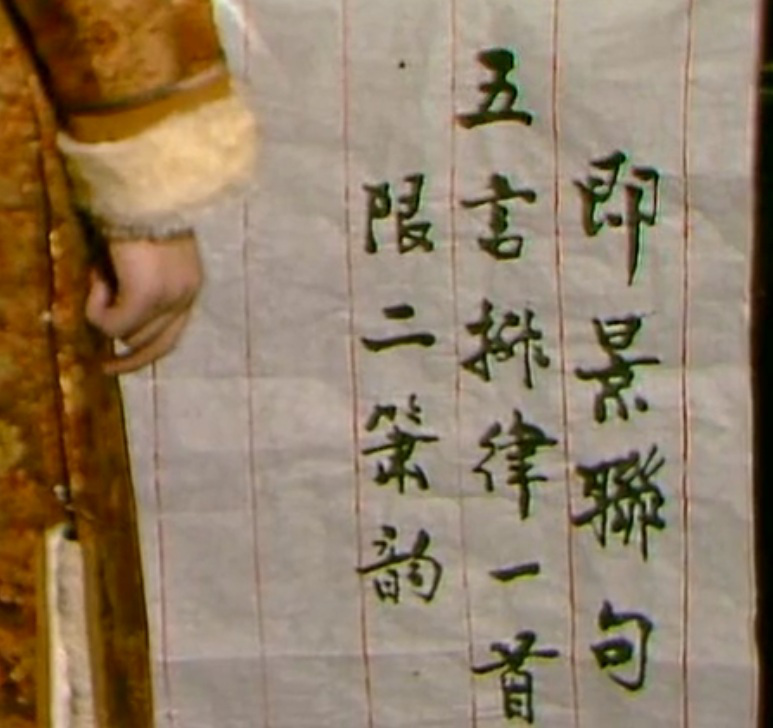 即景聯句
五言排律一首
限二蕭韵